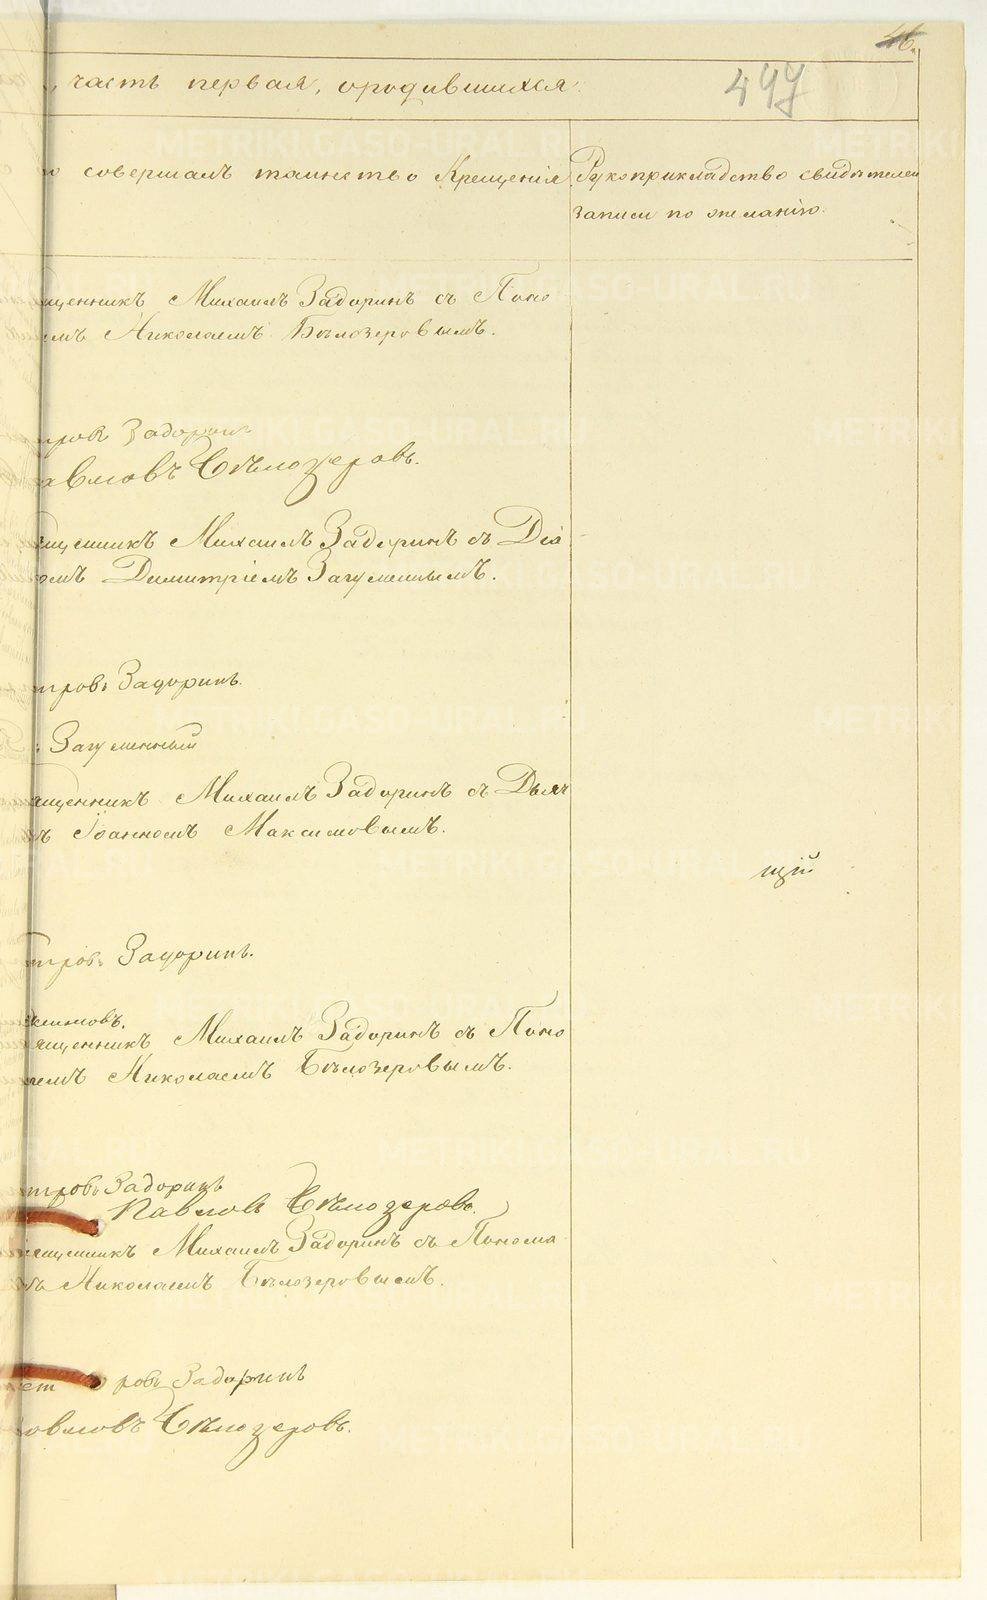 46.
497
, часть первая, ородившихся.
совершалъ таинство Крещенія
Рукоприкладство свидѣтелей
записи по желанію.
щенникъ Михаилъ Задоринъ съ Поно
емъ Николаемъ Бѣлозеровымъ.
тровъ Задоринъ
авловъ Бѣлозеровъ.
щенникъ Михаилъ Задоринъ съ Діа
омъ Димитріемъ Загуменнымъ.
тровъ Задоринъ.
Загуменный
ященникъ Михаилъ Задоринъ съ Дьяч
ъ Іоанномъ Максимовымъ.
щій
тровъ Задоринъ.
ксимовъ.
ященникъ Михаилъ Задоринъ съ Поно
емъ Николаемъ Бѣлозеровымъ.
тровъ Задоринъ
Павловъ Бѣлозеровъ.
ященникъ Михаилъ Задоринъ съ Понома
Николаемъ Бѣлозеровымъ.
ровъ Задоринъ
авловъ Бѣлозеровъ.
METRIKI.GASO-URAL.RU